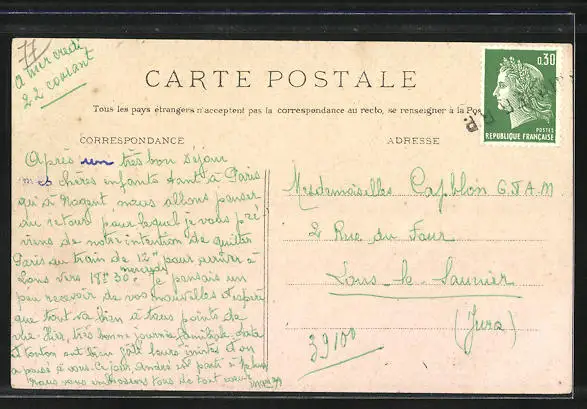 a mercredi
22 courant
CARTE POSTALE
Tous les pays étrangers n'acceptent pas la correspondance au recto, se renseigner à la Pos
CORRESPONDANCE
ADRESSE
0,30
POSTES
REPUBLIQUE FRANÇAISE
Après un très bon séjour
mes chères enfants tant à Paris
qu'à Nogent, nous allons penser
du retour pour lequel je vous pré
viens de notre intention de quitter
Paris du train de 12h pour arriver à
Lons vers 18h30 mercredi. Je pensais un
peu recevoir de vos nouvelles et espère
que tout va bien à tous points de
vue. Hier, très bonne journée familiale. tata
et tonton ont bien gâté leurs invités et on
a pensé à vous. Ce jour, André est parti à
nous vous embrassons tous de tout coeur
Mesdemoiselles Capblon G J A M
2 Rue du Four
Lons-le-Saunier
(Jura)
39100